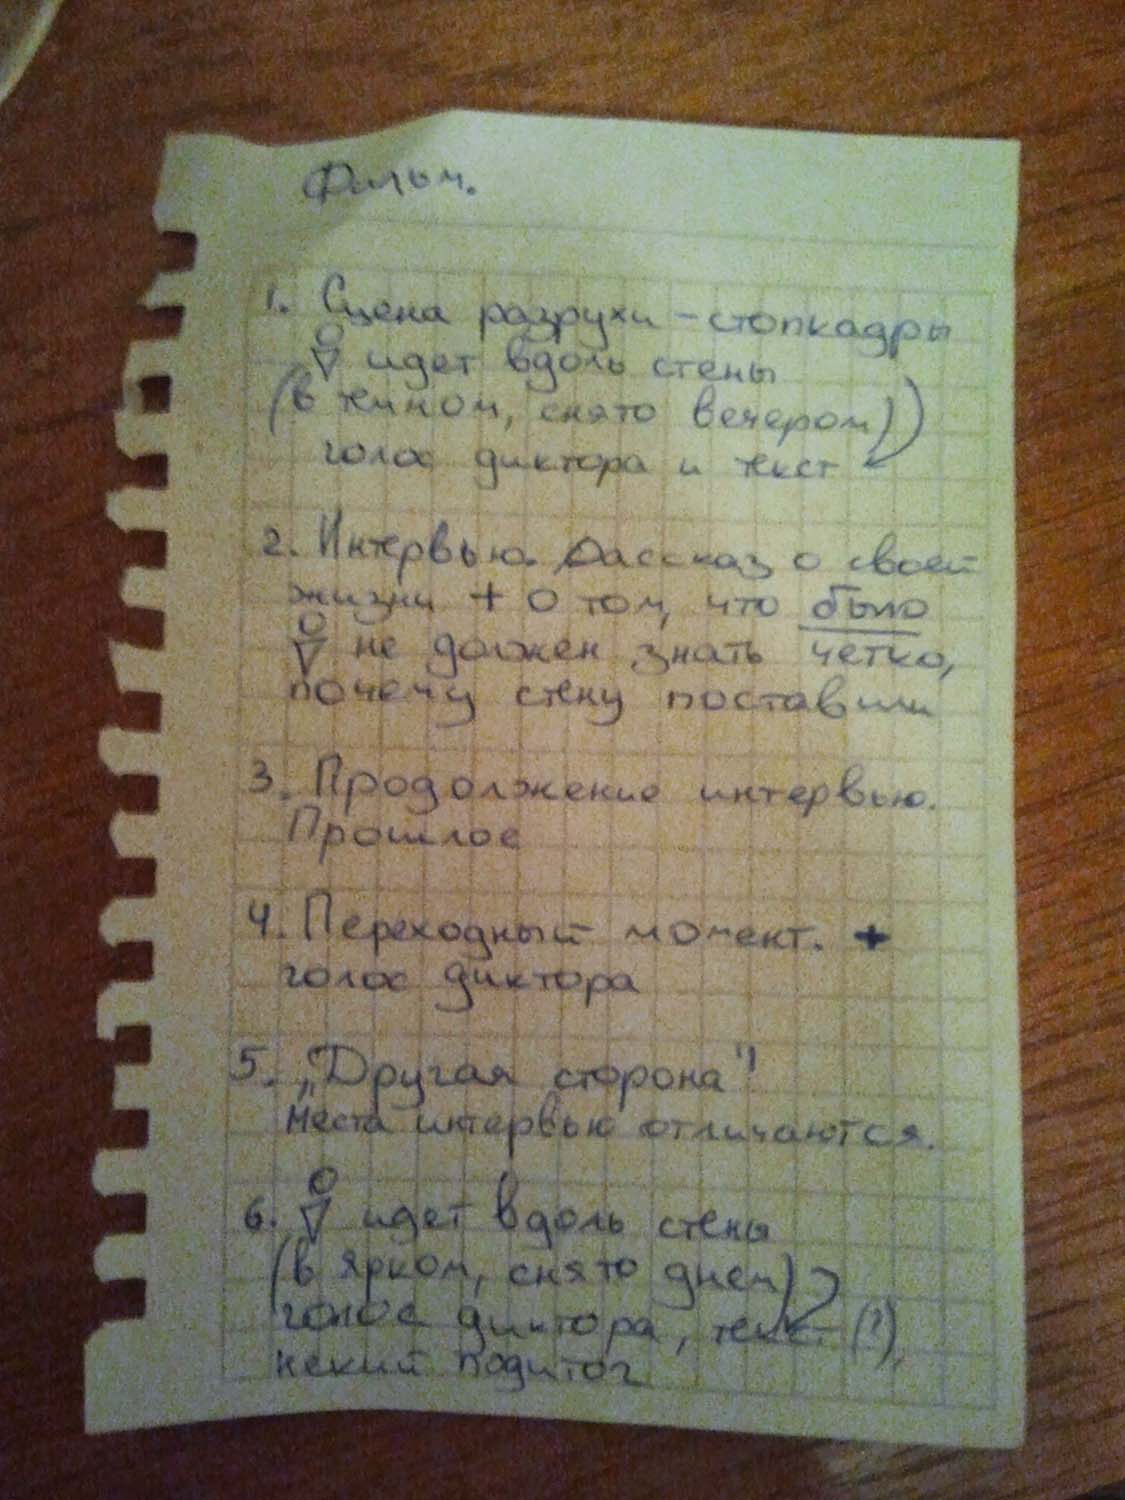 Фильм.
1. Сцена разрухи - стопкадры
идет вдоль стены
(в темном, снято вечером)
голос диктора и текст
2. Интервью. Рассказ о своей
жизни + о том, что было
не должен знать четко,
почему стену поставили
3. Продолжение интервью.
Прошлое
4. Переходный момент. +
голос диктора
5. „Другая сторона"
места интервью отличаются.
6. идет вдоль стены
(в ярком, снято днем)
голос диктора, текст (!),
некий подитог